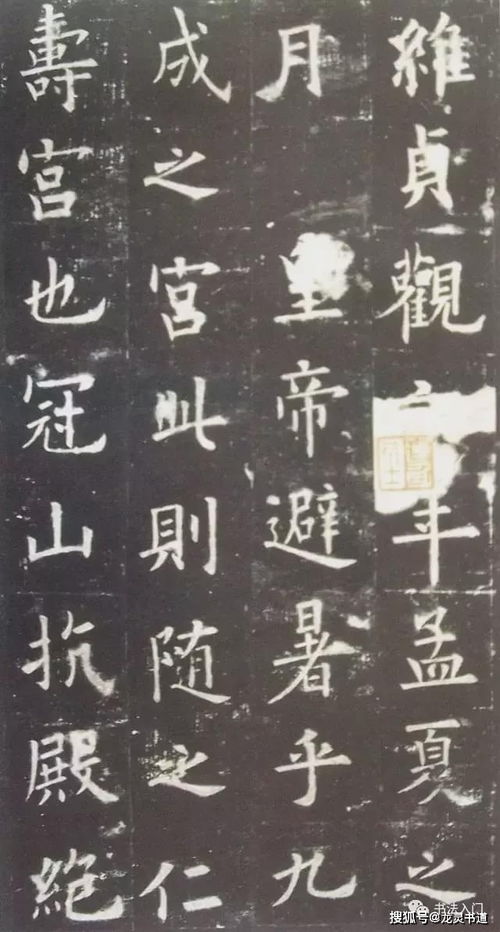 維貞觀六年孟夏之
月 皇帝避暑乎九
成之宮此則随之仁
壽宮也冠山抗殿絶
书法入门
搜狐号@龙灵书道